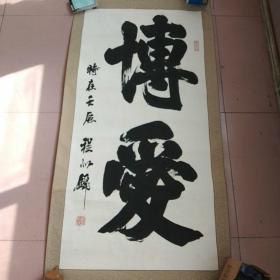 博愛
時在壬辰
程